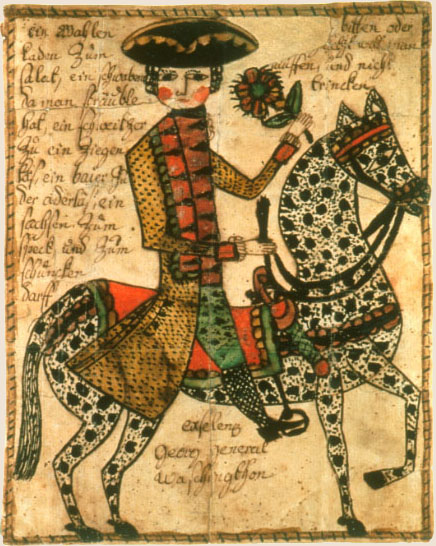 ein Wahlen
laden Zum
salat, ein schwaben
da man
hat, ein schweitzer
Zu ein Ziegen
Kes, ein baier Zu
der aderlaß, ein
sachsen Zum
speck, und Zum
schüncken
darff
bitten oder
man
und nicht
trincken
exselenz
Georg General
Waschingthon